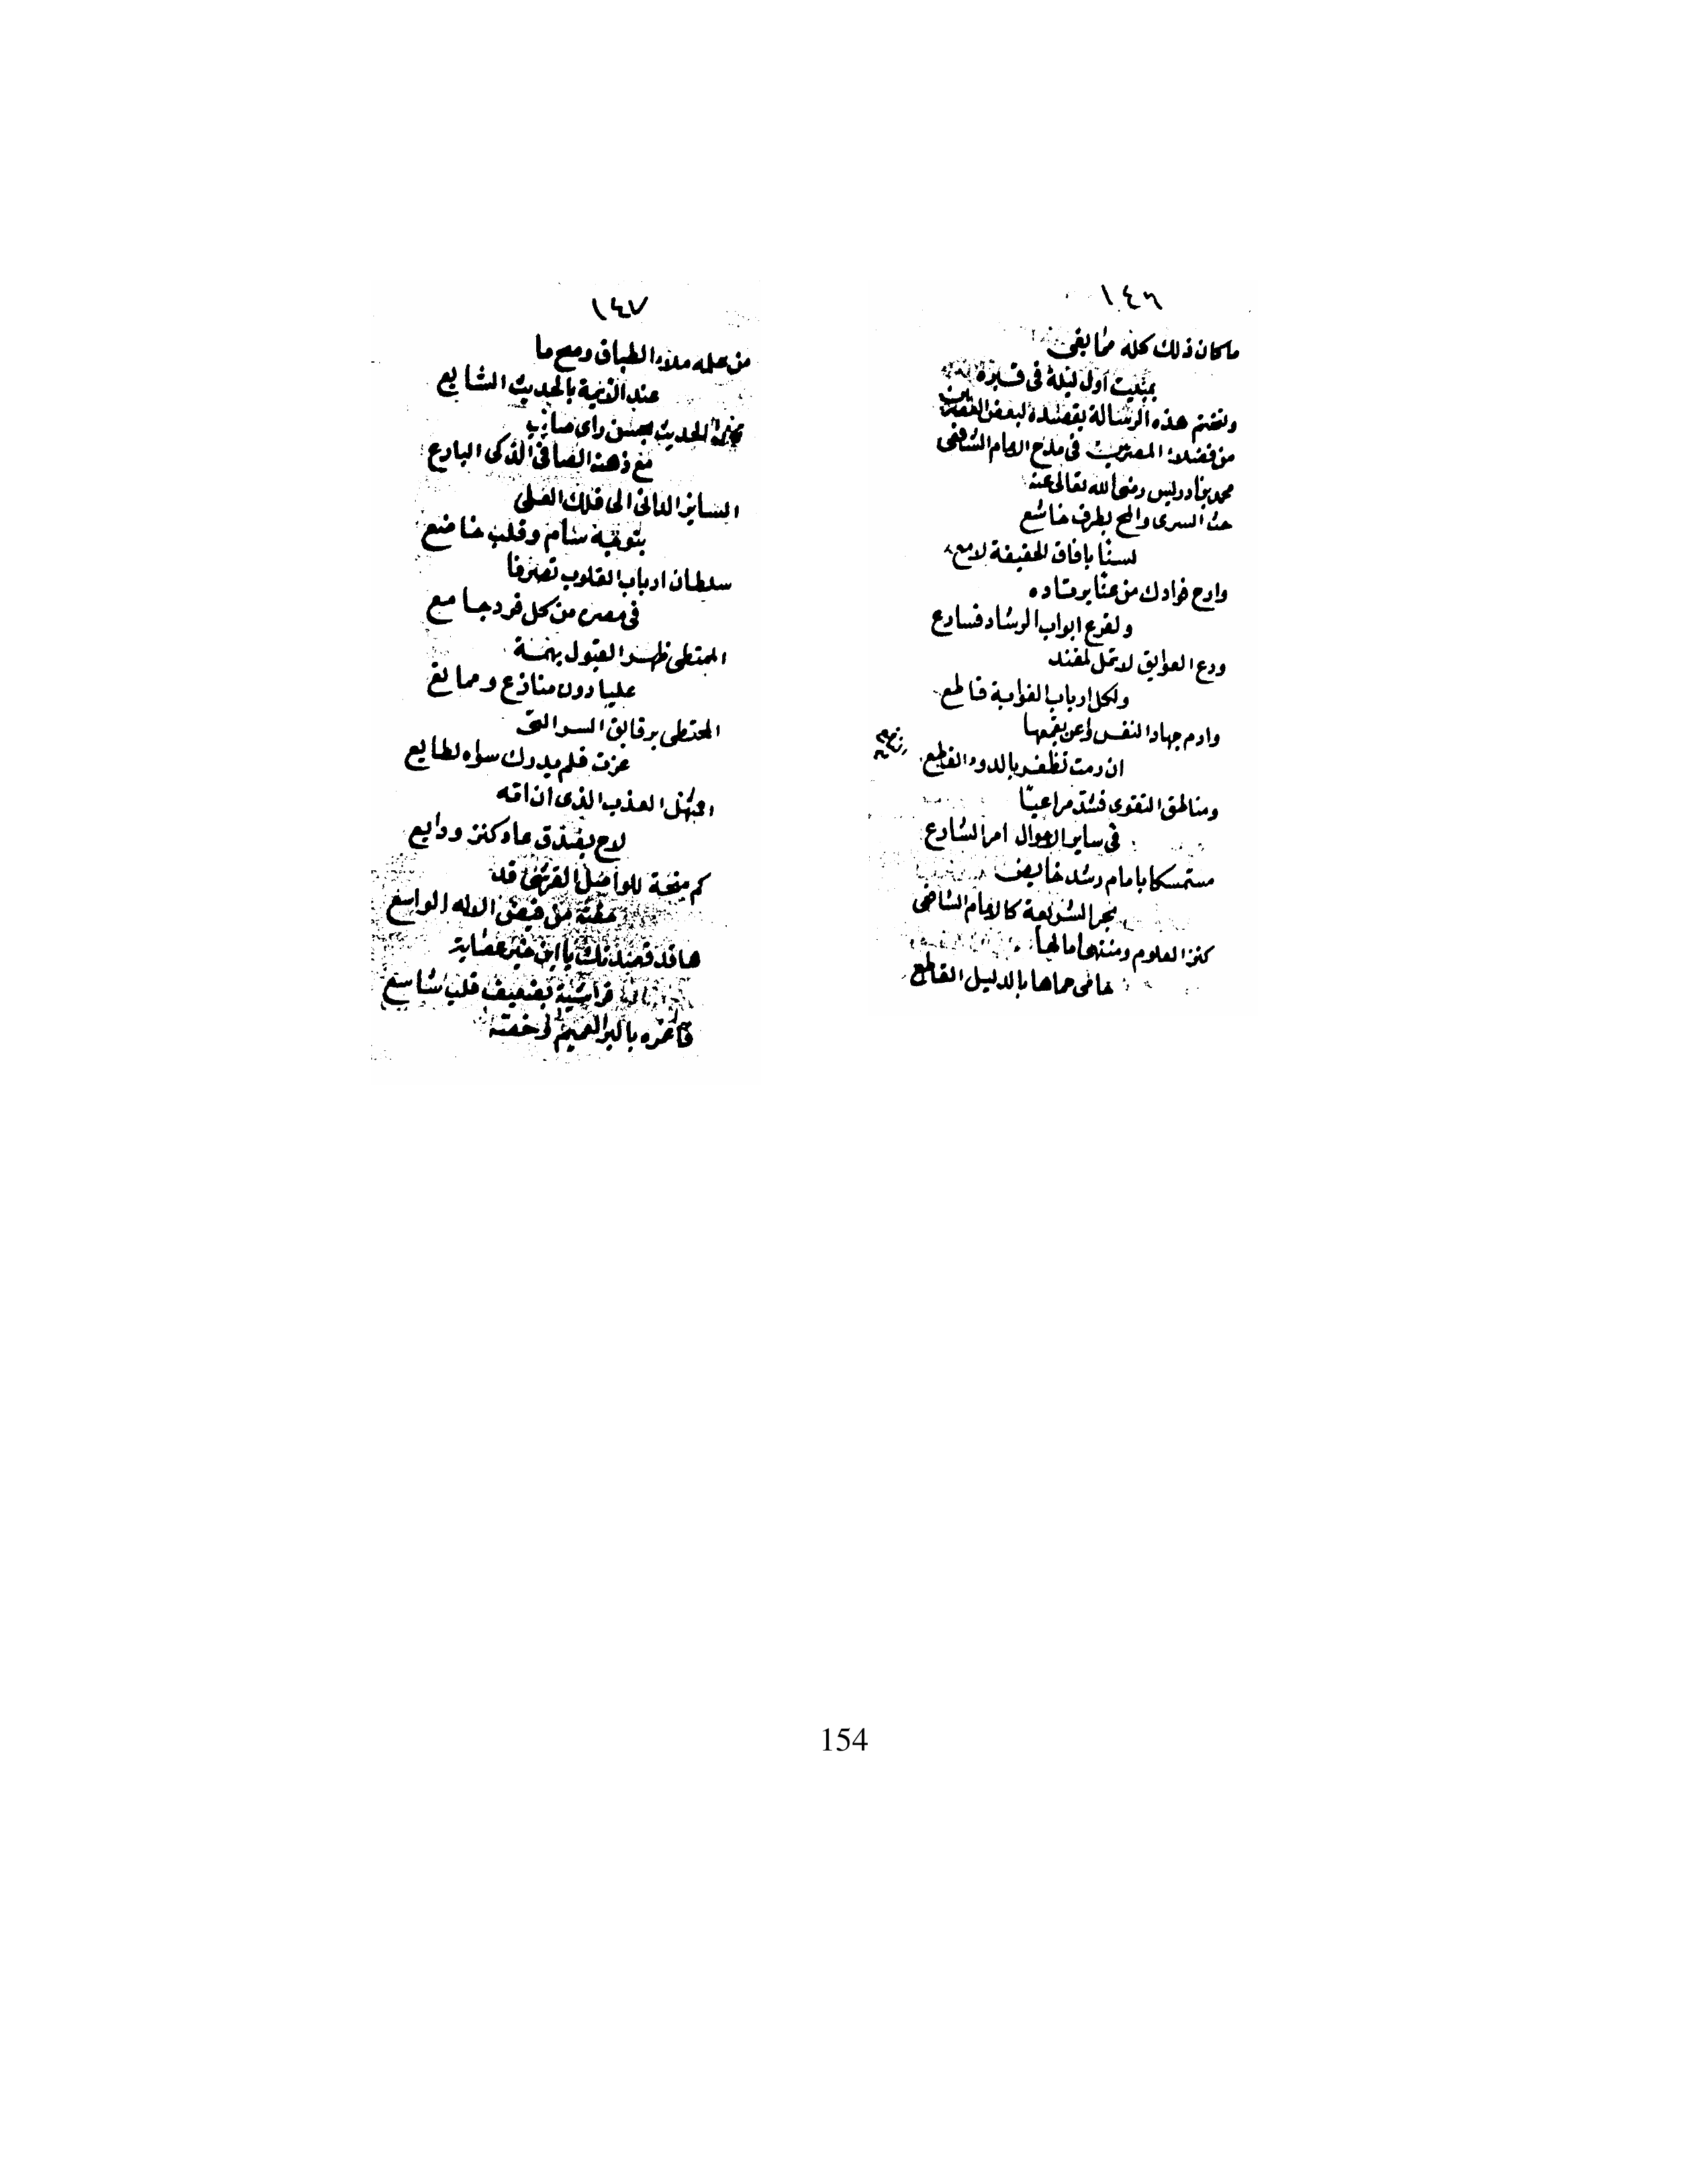 ١٤٦
ما كان ذلك كله مما يفى
بمبيت أول ليلة فى قبره
ونختم هذه الرسالة بقصيدة لبعض
من فضلاء المصريين فى مدح الامام الشافعى
محمد بن ادريس رضى الله تعالى عنه
حث السرى والمح بطرف خاشع
لسنا بافاق الحقيقة لامع
وارح فوادك من عنا
ولقرع ابواب الرشاد فسارع
ودع العوايق لا تمل لمفند
ولكل ارباب الغواية قاطع
وادم جهاد النفس
ان رمت تظفر بالدواء القاطع
ومناطق التقوى فشد مراعيا
فى ساير الاحوال امر الشارع
مستمسكا بامام رشد خايض
بحر الشريعة كالامام الشافعى
كنز العلوم ومنتهى امالها
حامى حماها بالدليل القاطع
١٤٧
من علمه ملاء الطباق ومح ما
عند الائمة بالحديث الشايع
الحديث بحسن راى صايب
مع ذهنه الصافى الذكى البارع
الساير الدانى الى فلك العلى
بتوجه سام وقلب خاضع
سلطان ارباب القلوب تصرفا
فى مصره من كل فرد جامع
الممتطى ظهر القبول بهمة
عليا دون منازع وممانع
المحتظى برقايق السر التى
عزت فلم يدرك سواه لطايع
المنهل العذب الذى ان امه
لاح بفندق عاد كنز ودايع
كم منحة للواصل القرشى قد
من فيض الاله الواسع
ها قد قصدتك يا ابن خير عصابة
قرشية بضعيف قلب شاسع
بالبر العميم
154